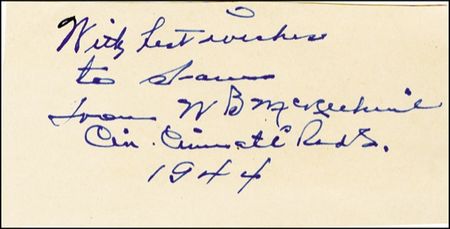 With best wishes
to
from W B McKechnie
Cin. Cinnati Reds.
1944